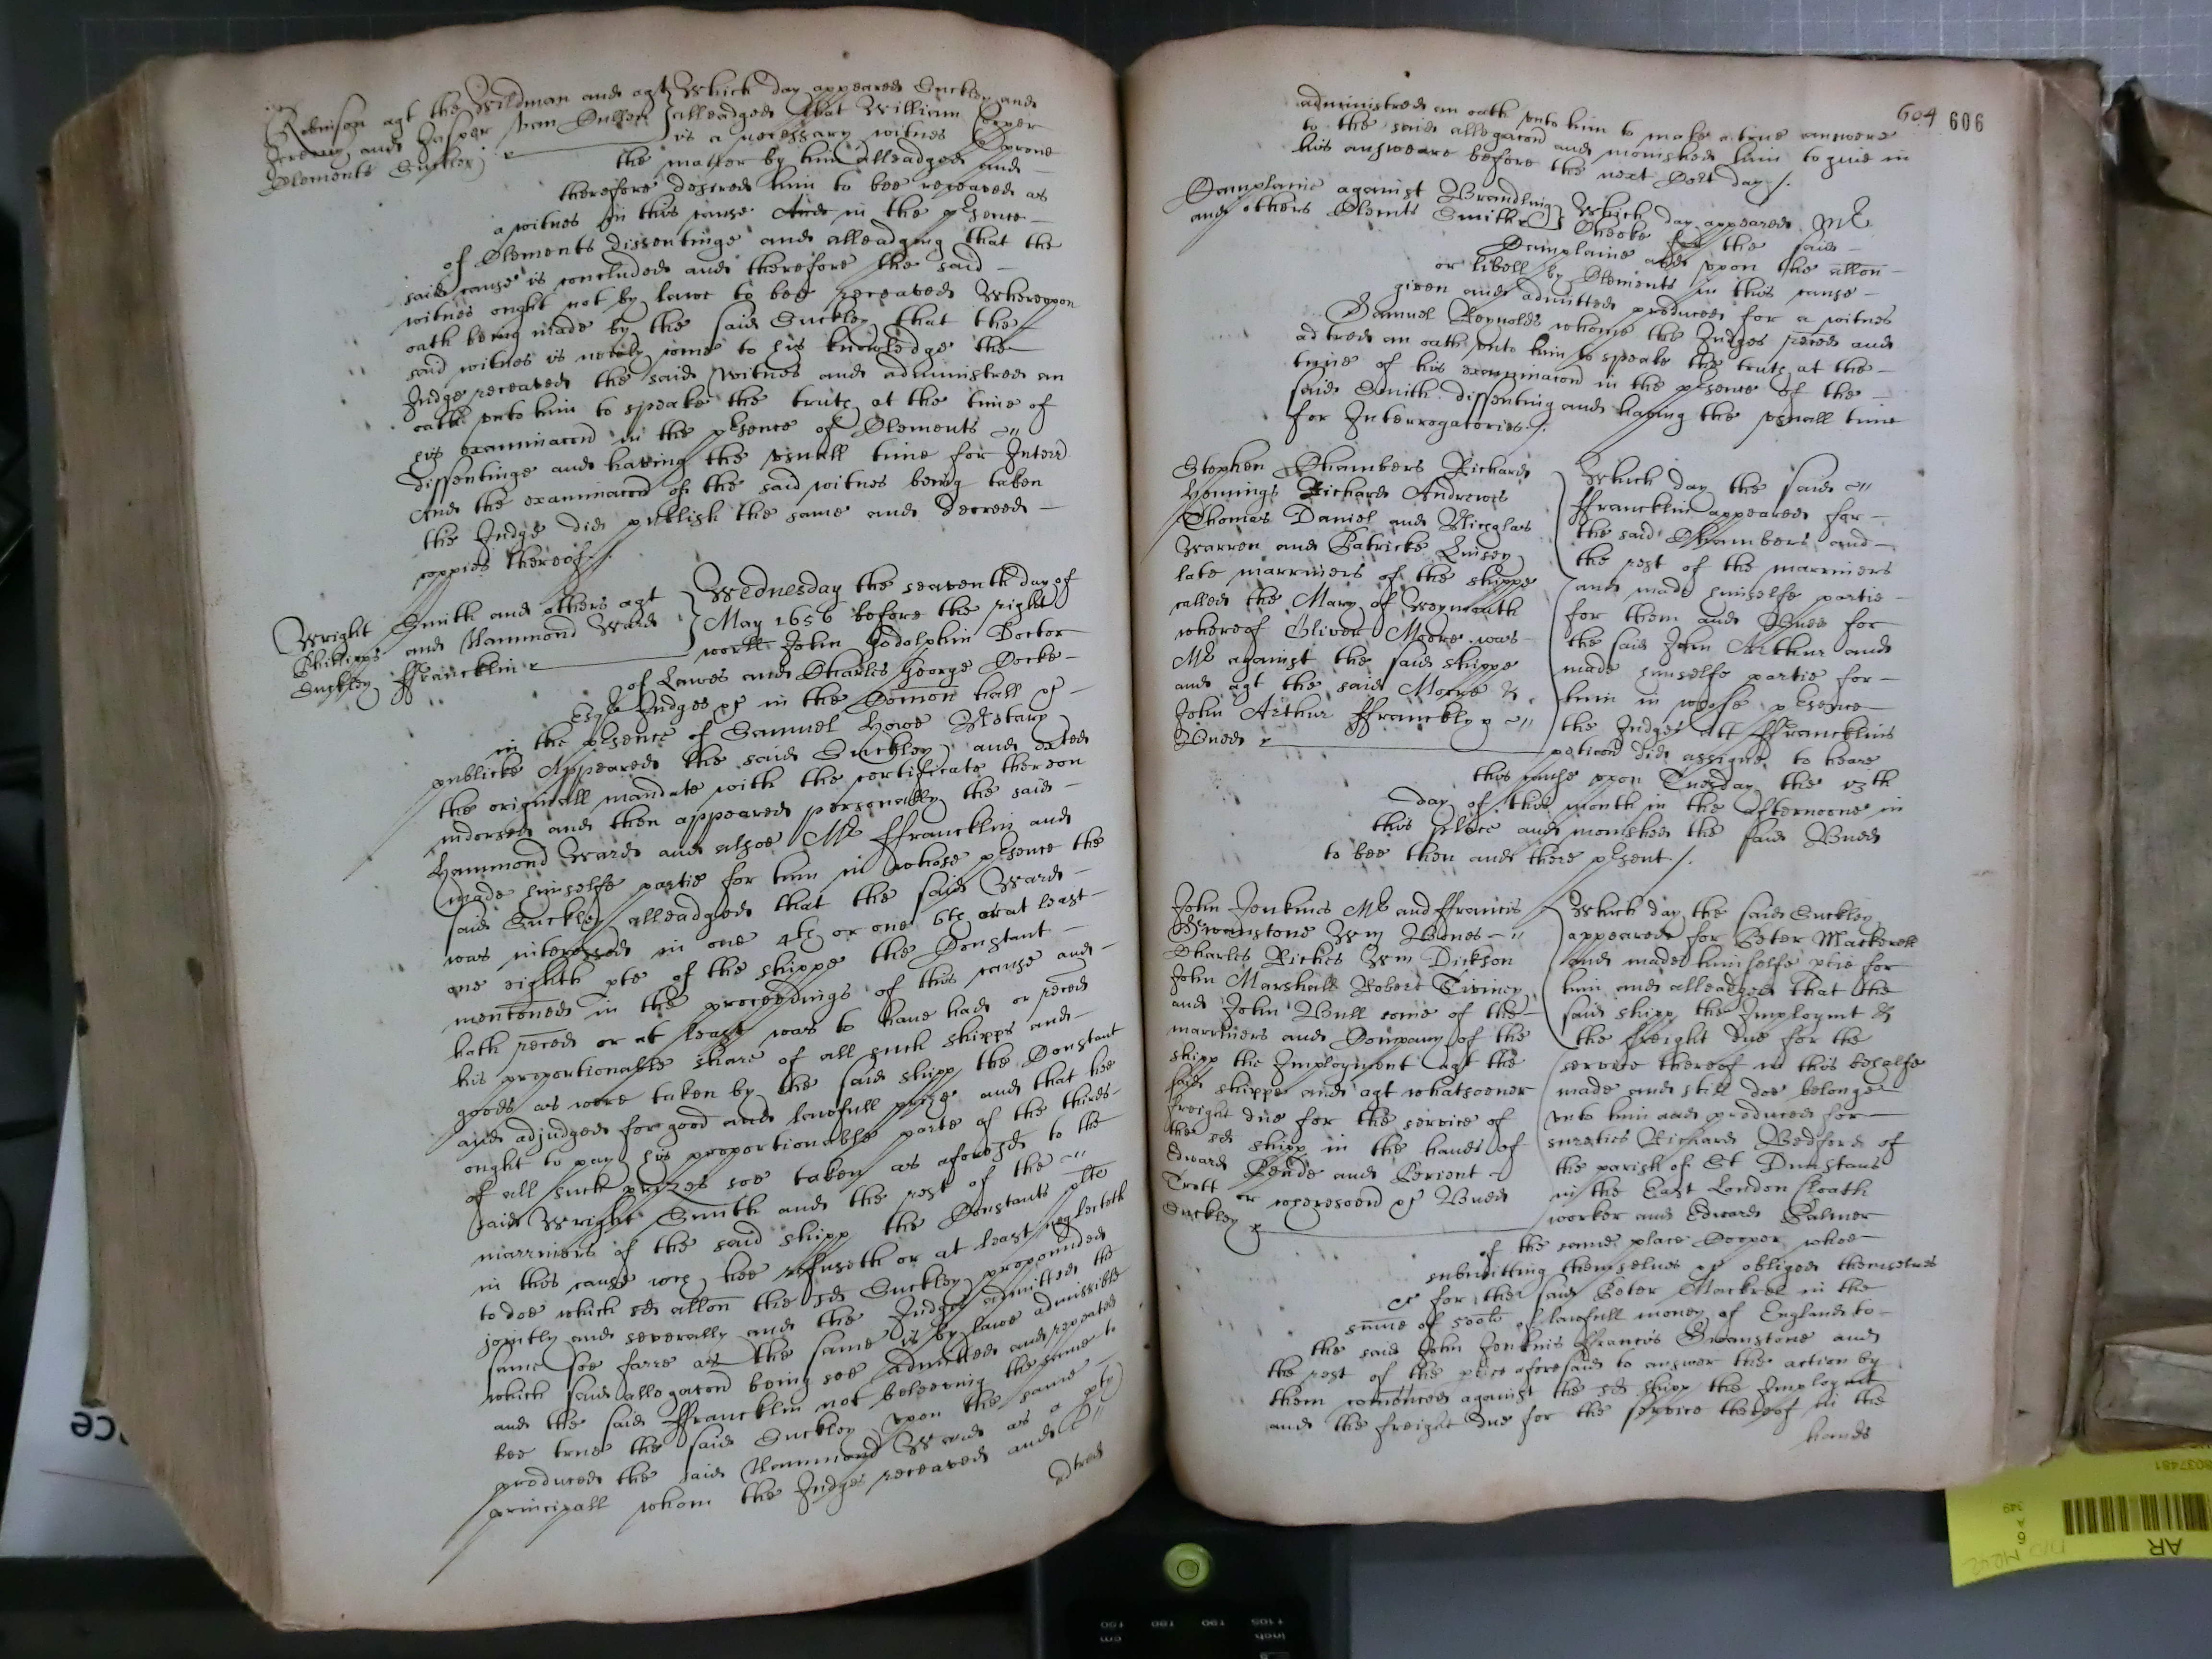 Robinson agt the Wildman and agt
Jeremy and Jasper Van Dussen
Clements Suckley
Which day appeared Suckley and
alleadged that William Cooper
is a necessary witnes to prove
the matter by him alleadged and
therefore desired him to bee receaved as
a witnes in this cause And in the p<sup>r</sup>sence
of Clements dissentinge and alleadging that the
said cause is concluded and therefore the said
witnes ought not by lawe to bee receaved Whereupon
oath being made by the said Suckley that the
said witnes is newly come to his knowledge the
Judge receaved the said witnes and administred an
oath unto him to speake the truth at the time of
his examinacon in the p<sup>r</sup>sence of Clements
dissentinge and having the usuall time for Interr
And the examinacon of the said witnes being taken
the Judge did publish the same and decreed
coppies thereof /.
Wright Smith and others agt
Phillipps and Hammond Ward
Suckley ffrancklin
Wednesday the seaventh day of
May 1656 before the right
wor<sup>ll</sup> John Godolphin Doctor
of Lawes and Charles George Cocke
Esq<sup>r</sup> Judges &c in the Comon hall &c
in the p<sup>r</sup>sence of Samuel Howe Notary
publicke Appeared the said Suckley and
the originall mandate with the certificate thereon
indorsed and then appeared personally the said
Hammond Ward and alsoe Mr ffrancklin and
made himselfe partie for him in whose p<sup>r</sup>sence the
said Suckley alleadged that the said Ward
was interessed in one 4th or one 6th or at least
one eighth pte of the shippe the Constant
mentoned in the proceedings of this cause and
hath reced or at least was to have had or reced
his proportionable share of all such shipps and
goods as were taken by the said shipp the Constant
and adjudged for good and lawfull prize and that hee
ought to pay his proportionable parte of the thirds
of all such prizes soe taken as aforesd to the
said Wright Smith and the rest of the
marriners of the said shipp the Constants
in this cause wch hee refuseth or at least neglecteth
to doe which sd allon the sd Suckley propounded
jointly and severally and the Judges admitted the
same soe farre as the same is by lawe admissible
which said allegacon being soe admitted and repeated
and the said ffrancklin not beleeving the same to
bee true the said Suckley upon the same
produced the said Hammond Ward as a pty
principall whom the Judges receaved and
adtred
604 606
administred an oath unto him to make a true answere
to the said allegacon and monished him to give in
his answeare before the next Cort day /.
against Brandling
and others Clemts Smith
Which day appeared Mr
Cheeke for the said
and upon the allon
or libell by Clements in this cause
given and admitted produced for a witnes
Samuel Reynolds whome the Judges reced and
adtred an oath unto him to speake the truth at the
time of his examinacon in the p<sup>r</sup>sence of the
said Smith dissenting and having the usuall time
for Interrogatories /.
Stephen Chambers Richard
Hennings Richard Andrewes
Thomas Daniel and Nicholas
Warren and Patricke Linsey
late marriners of the shippe
called the Mary of Weymouth
whereof Oliver Moore was
Mr against the said shippe
and agt the said Moore &
John Arthur ffrancklyn
Budd
Which day the said
ffrancklin appeared for
the said Chambers and
the rest of the marriners
and made himselfe partie
for them and Budd for
the said John Arthur and
made himselfe partie for
him in whose p<sup>r</sup>sence
the Judges att ffrancklins
peticon did assigne to heare
this cause upon Tuesday the 13th
day of this month in the afternoone in
this place and monished the said Budd
to bee then and there p<sup>r</sup>sent /.
John Jenkins Mr and ffrancis
Swanstone Wm Jones
Charles Riches Wm Dickson
John Marshall Robert
and John Bull some of the
marriners and Company of the
shipp the Imployment agt the
said shippe and agt whatsoever
freight due for the service of
the sd shipp in the hands of
Edward Peade and Perient
Trott or &c Budd
Suckley
Which day the said Suckley
appeared for Peter Mackerell
and made himselfe ptie for
him and alleadged that the
said shipp the Imploymt &
the freight due for the
service thereof in this behalfe
made and still doe belonge
unto him and produced for
sureties Richard Bedford of
the parish of St Dunstans
in the East London Cloath
worker and Edward Palmer
of the same place Cooper whoe
submitting themselves &c obliged themselves
&c for the said Peter Mackrel in the
sume of 500li of lawfull money of England to
the said John Jenkins ffrancis Swanstone and
the rest of the ptie aforesaid to answer the action by
them comenced against the sd shipp the Imploymt
and the freight due for the service thereof in the
hands